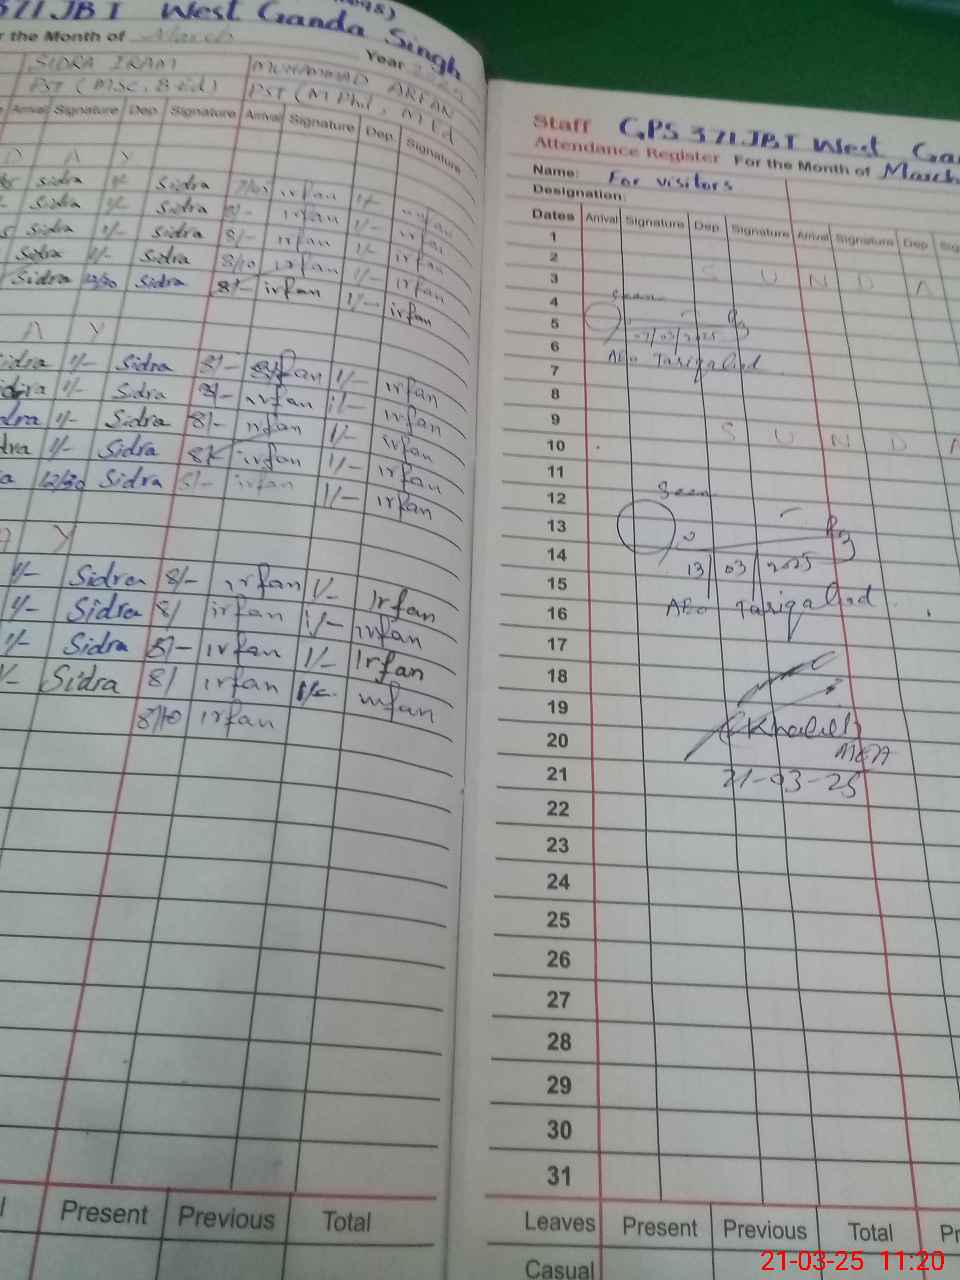 371 JBI West Ganda Singh
r the Month of March Year
SIDRA IRAM MUHAMMAD ARFAN
PST (MSc, B.ed) PST (M Phil, M Ed
Arrival Signature Dep. Signature Arrival Signature Dep. Signature
D A Y
sidra 1/- Sidra irfan 1/- irfan
sidra 1/- Sidra 8/- irfan 1/- irfan
sidra 1/- Sidra 8/- irfan 1/- irfan
Sidra 1/- Sidra 8/10 irfan 1/- irfan
Sidra 12/30 Sidra 8/- irfan 1/- irfan
A Y
sidra 1/- Sidra 8/- irfan 1/- irfan
1/- Sidra 8/- irfan 1/- irfan
dra 1/- Sidra 8/- irfan 1/- irfan
dra 1/- Sidra irfan 1/- irfan
a 12/30 Sidra 8/- irfan 1/- irfan
Y
1/- Sidra 8/- irfan 1/- Irfan
1/- Sidra 8/ irfan 1/- irfan
1/- Sidra 8/- irfan 1/- Irfan
/- Sidra 8/ irfan irfan
8/10 irfan
Present Previous Total
Staff GPS 371 JBI West Ga
Attendance Register For the Month of March
Name: For visitors
Designation:
Dates Arrival Signature Dep. Signature Arrival Signature Dep. Sig
1
2 S U N D A
3
4 Seen
5
6 07/03/2025
7 AEO Tariq
8
9 S U N D A
10
11
12 Seen
13
14 13 03 2025
15
16 AEO Tariq
17
18
19
20 (Khalil)
MEA
21 21-03-25
22
23
24
25
26
27
28
29
30
31
Leaves Present Previous Total Pr
Casual
21-03-25 11:20